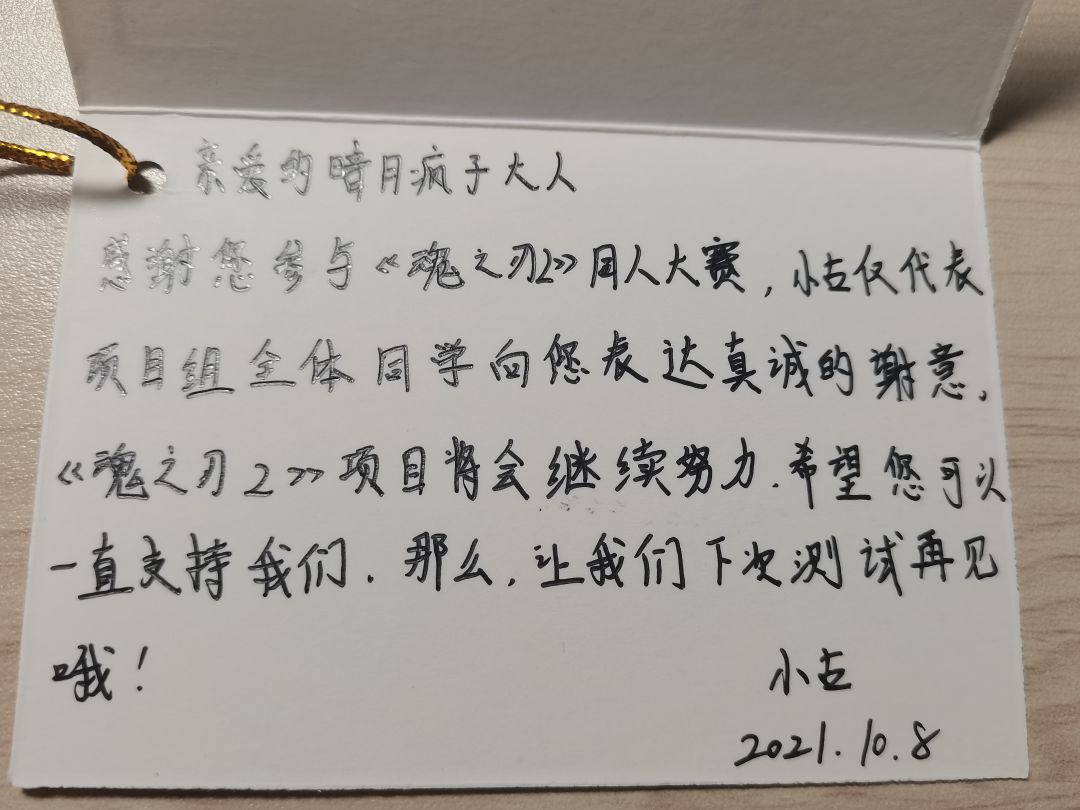 亲爱的暗月疯子大人
感谢您参与《魂之刃2》同人大赛，小古仅代表
项目组全体同学向您表达真诚的谢意。
《魂之刃2》项目将会继续努力.希望您可以
一直支持我们.那么,让我们下次测试再见
哦！
小古
2021.10.8